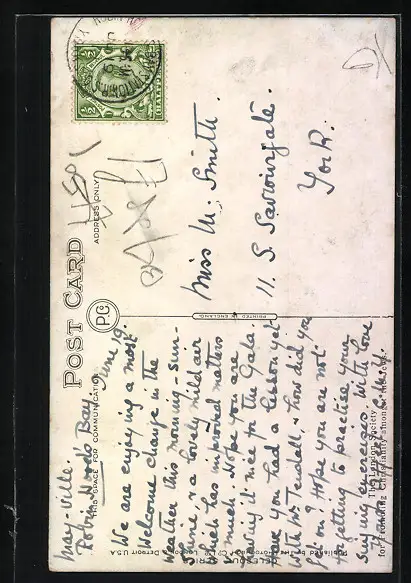 POST CARD
THIS SPACE FOR COMMUNICATION
ADDRESS ONLY
PRINTED IN ENGLAND
May-Ville
Robin Hood's Bay. June 19.
We are enjoying a most
welcome change in the
weather this morning - sun-
shine & a lovely mild air
which has improved matters
much. Hope you are
having it nice for the Gala
Have you had a lesson yet
with Mr Tendall & how did you
get on? Hope you are not
forgetting to practise your
swing exercises. With love
Miss M. Smith.
11 S. Saviourgate.
York.
The London Society
for Promoting Christianity amongst the Jews.